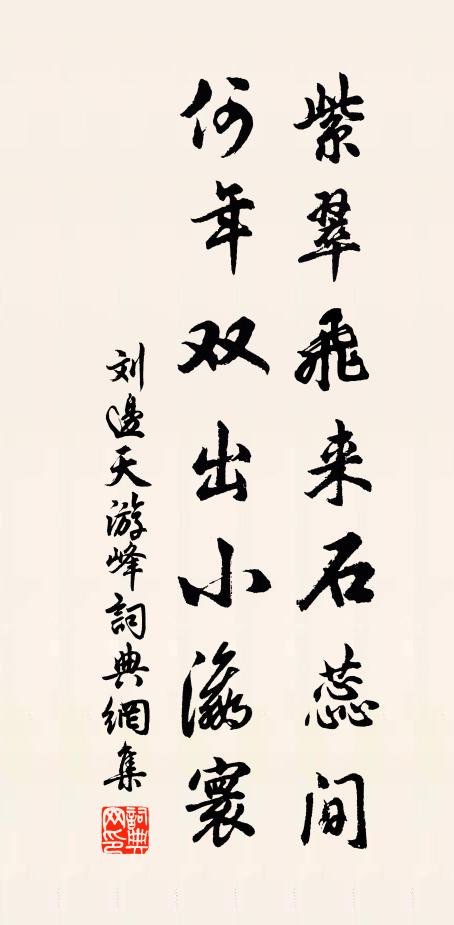 紫翠飛来石蕊间
何年双出小瀛寰
刘邊天游峰詞典網集
詞典网印